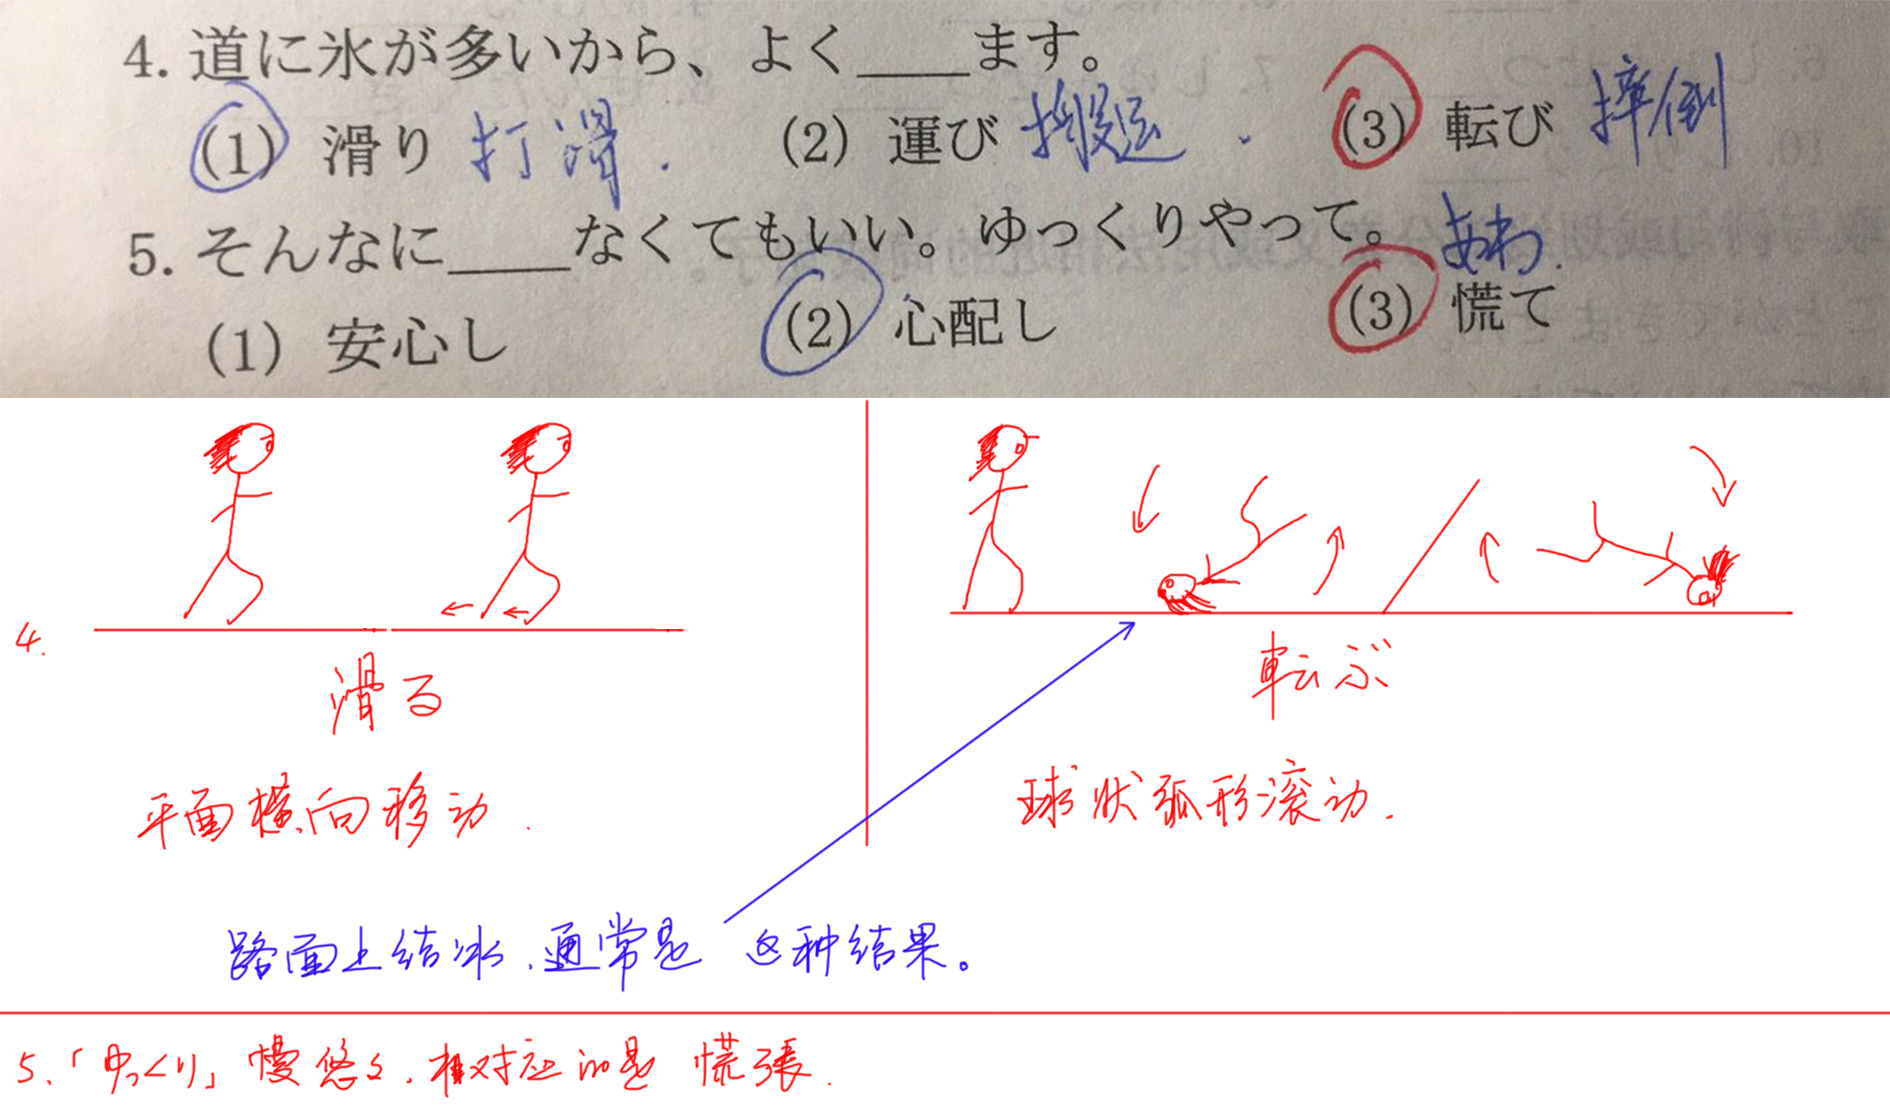 4. 道に氷が多いから、よく____ます。
(1) 滑り 打滑. (2) 運び 搬运. (3) 転び 摔倒
5. そんなに____なくてもいい。ゆっくりやって。 あわ.
(1) 安心し (2) 心配し (3) 慌て
4.
滑る
転ぶ
平面横向移动.
球状弧形滚动.
路面上结冰,通常是 这种结果。
5、「ゆっくり」慢悠々.相对应的是 慌張.